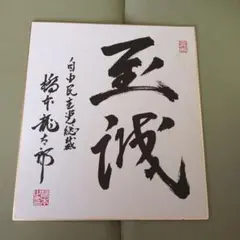 至誠
自由民主党総裁
橋本龍太郎